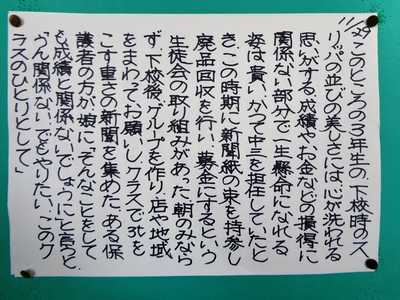 11/29
このところの3年生の、下校時のス
リッパの並びの美しさには心が洗われる
思いがする。成績や、お金などの損得に
関係ない部分で一生懸命になれる
姿は貴い。かつて中三を担任していたと
き、この時期に新聞紙の束を持参し
廃品回収を行い、募金にするという
生徒会の取り組みがあった。朝のみなら
ず、下校後、グループを作り、店や地域
をまわってお願いし、クラスで3tを
こす重さの新聞を集めた。ある保
護者の方が、娘に「そんなことをして
も成績と関係ないでしょうに」と言うと、
「うん関係ない。でもやりたい。このク
ラスのひとりとして」